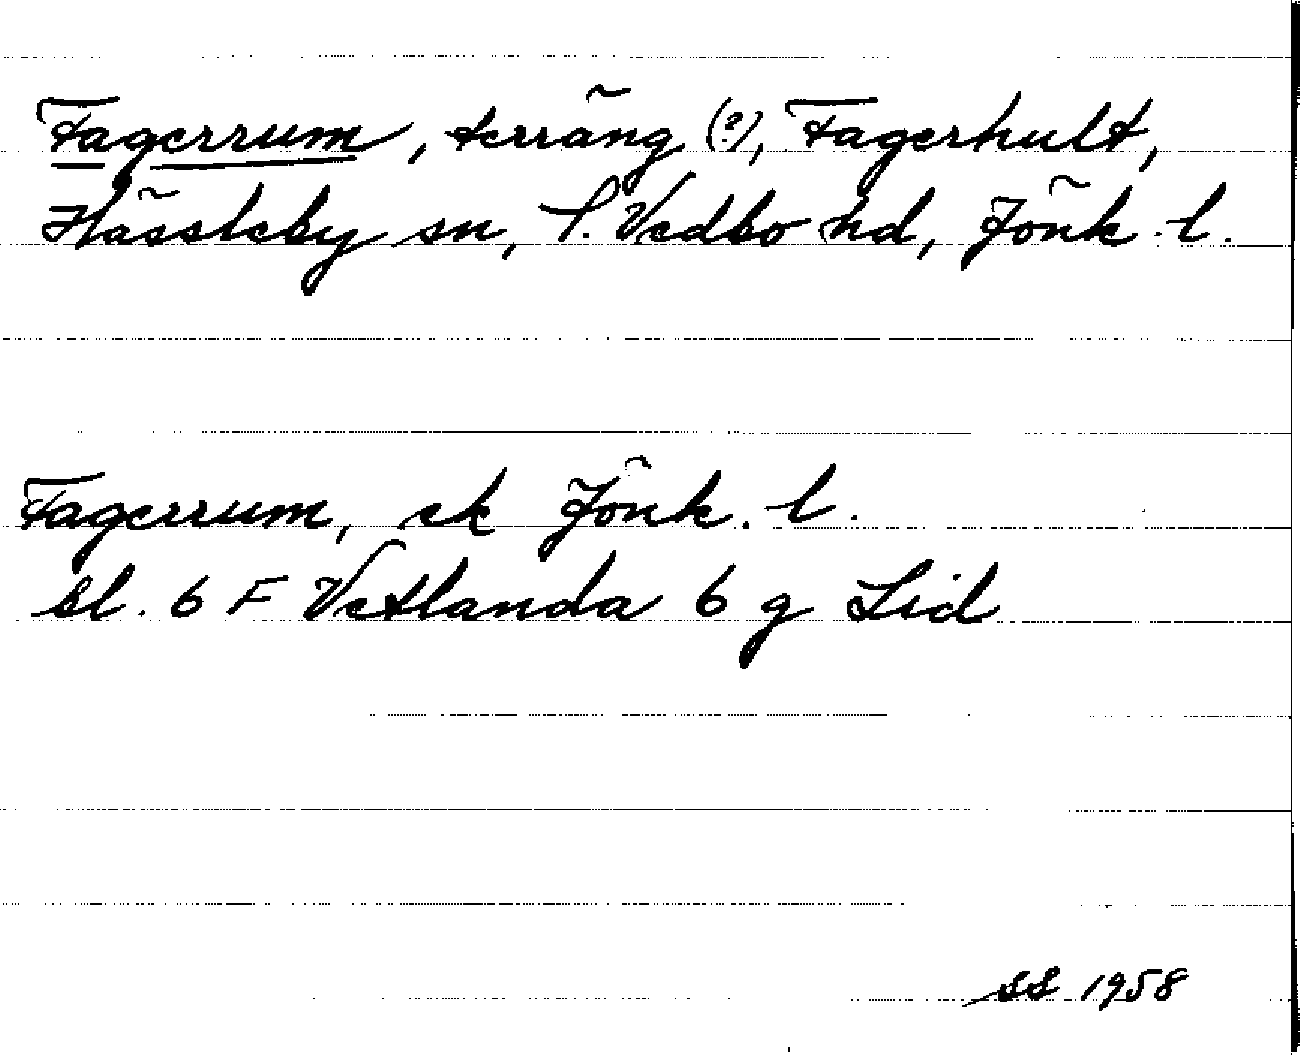 Fagerrum, terräng (?), Fagerhult,
Hässleby sn, S. Vedbo hd, Jönk. l.
Fagerrum, ek Jönk. l.
bl. 6 F Vetlanda 6 g Lid
SS 1958